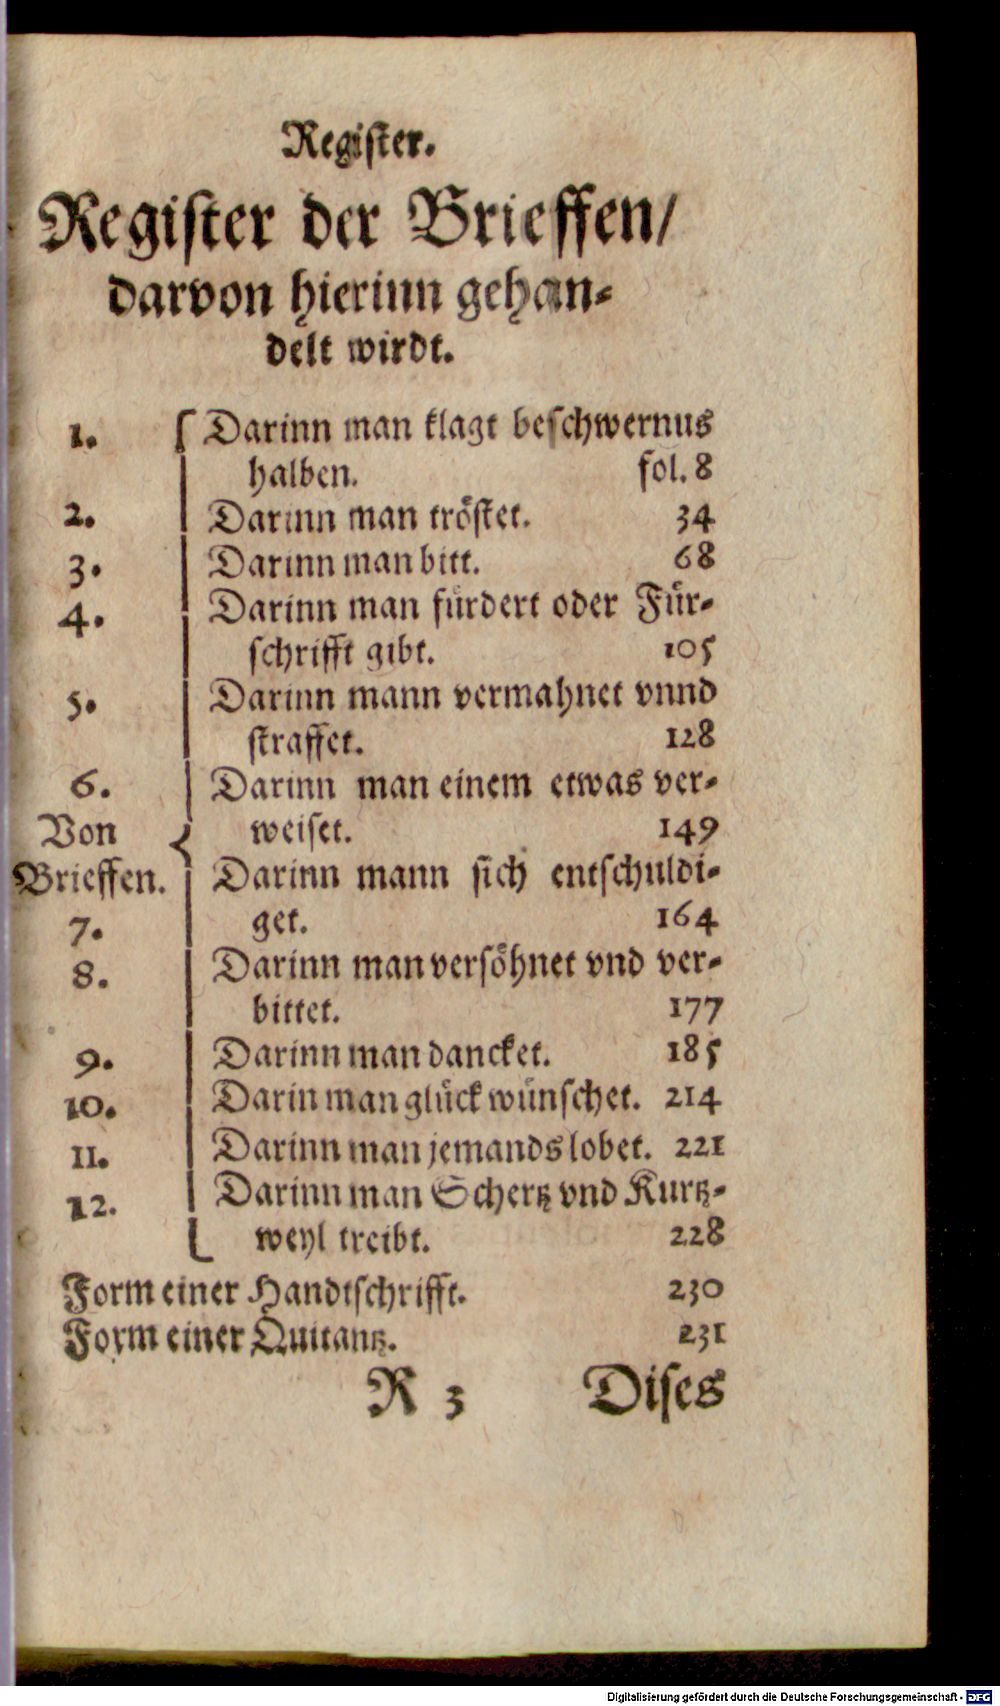 Regiſter.
Regiſter der Brieffen/
darvon hierinn gehan⸗
delt wirdt.
1. Darinn man klagt beſchwernus
halben. fol. 8
2. Darinn man tröſtet. 34
3. Darinn man bitt. 68
4. Darinn man fürdert oder Für⸗
ſchrifft gibt. 105
5. Darinn mann vermahnet vnnd
ſtraffet. 128
6. Darinn man einem etwas ver⸗
Von weiſet. 149
Brieffen. Darinn mann sich entſchuldi⸗
7. get. 164
8. Darinn man verſöhnet vnd ver⸗
bittet. 177
9. Darinn man dancket. 185
10. Darin man glück wünſchet. 214
11. Darinn man jemands lobet. 221
12. Darinn man Schertz vnd Kurtz⸗
weyl treibt. 228
Form einer Handtſchrifft. 230
Form einer Quitantz. 231
R 3 Diſes
Digitalisierung gefördert durch die Deutsche Forschungsgemeinschaft - DFG